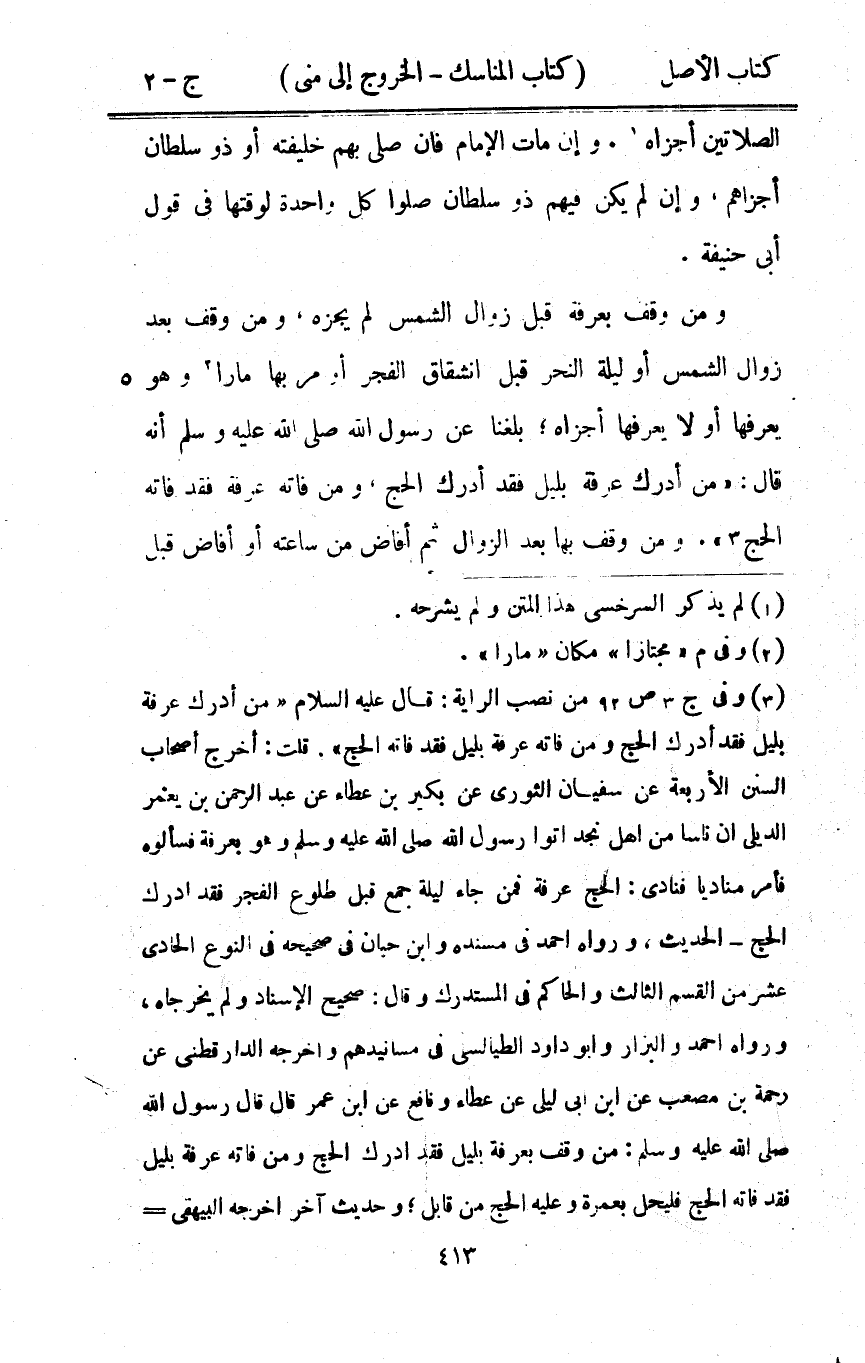 كتاب الأصل (كتاب المناسك – الخروج إلى منى) ج – ٢
الصلاتين أجزاه ١ . و إن مات الإمام فان صلى بهم خليفته أو ذو سلطان
أجزاهم ، و إن لم يكن فيهم ذو سلطان صلوا كل واحدة لوقتها فى قول
أبى حنيفة .
و من وقف بعرفة قبل زوال الشمس لم يجزه ، و من وقف بعد
زوال الشمس أو ليلة النحر قبل انشقاق الفجر أو مر بها مارا٢ و هو ٥
يعرفها أو لا يعرفها أجزاه ؛ بلغنا عن رسول الله صلى الله عليه و سلم أنه
قال : « من أدرك عرفة بليل فقد أدرك الحج ، و من فاته عرفة فقد فاته
الحج ٣ » . و من وقف بها بعد الزوال ثم أفاض من ساعته أو أفاض قبل
(١) لم يذكر السرخسى هذا المتن و لم يشرحه .
(٢) و فى م « مجتازا » مكان « مارا » .
(٣) و فى ج ٣ ص ٩٢ من نصب الراية : قال عليه السلام « من أدرك عرفة
بليل فقد أدرك الحج و من فاته عرفة بليل فقد فاته الحج » . قلت : أخرج أصحاب
السنن الأربعة عن سفيان الثورى عن بكير بن عطاء عن عبد الرحمن بن يعمر
الديلى ان ناسا من اهل نجد اتوا رسول الله صلى الله عليه و سلم و هو بعرفة فسألوه
فأمر مناديا فنادى : الحج عرفة فمن جاء ليلة جمع قبل طلوع الفجر فقد ادرك
الحج – الحديث ، و رواه احمد فى مسنده و ابن حبان فى صحيحه فى النوع الحادى
عشر من القسم الثالث و الحاكم فى المستدرك و قال : صحيح الإسناد و لم يخرجاه ،
و رواه احمد و البزار و ابو داود الطيالسى فى مسانيدهم و اخرجه الدارقطنى عن
رحمة بن مصعب عن ابن ابى ليلى عن عطاء و نافع عن ابن عمر قال قال رسول الله
صلى الله عليه و سلم : من وقف بعرفة بليل فقد ادرك الحج و من فاته عرفة بليل
فقد فاته الحج فليحل بعمرة و عليه الحج من قابل ؛ و حديث آخر اخرجه البيهقى =
٤١٣